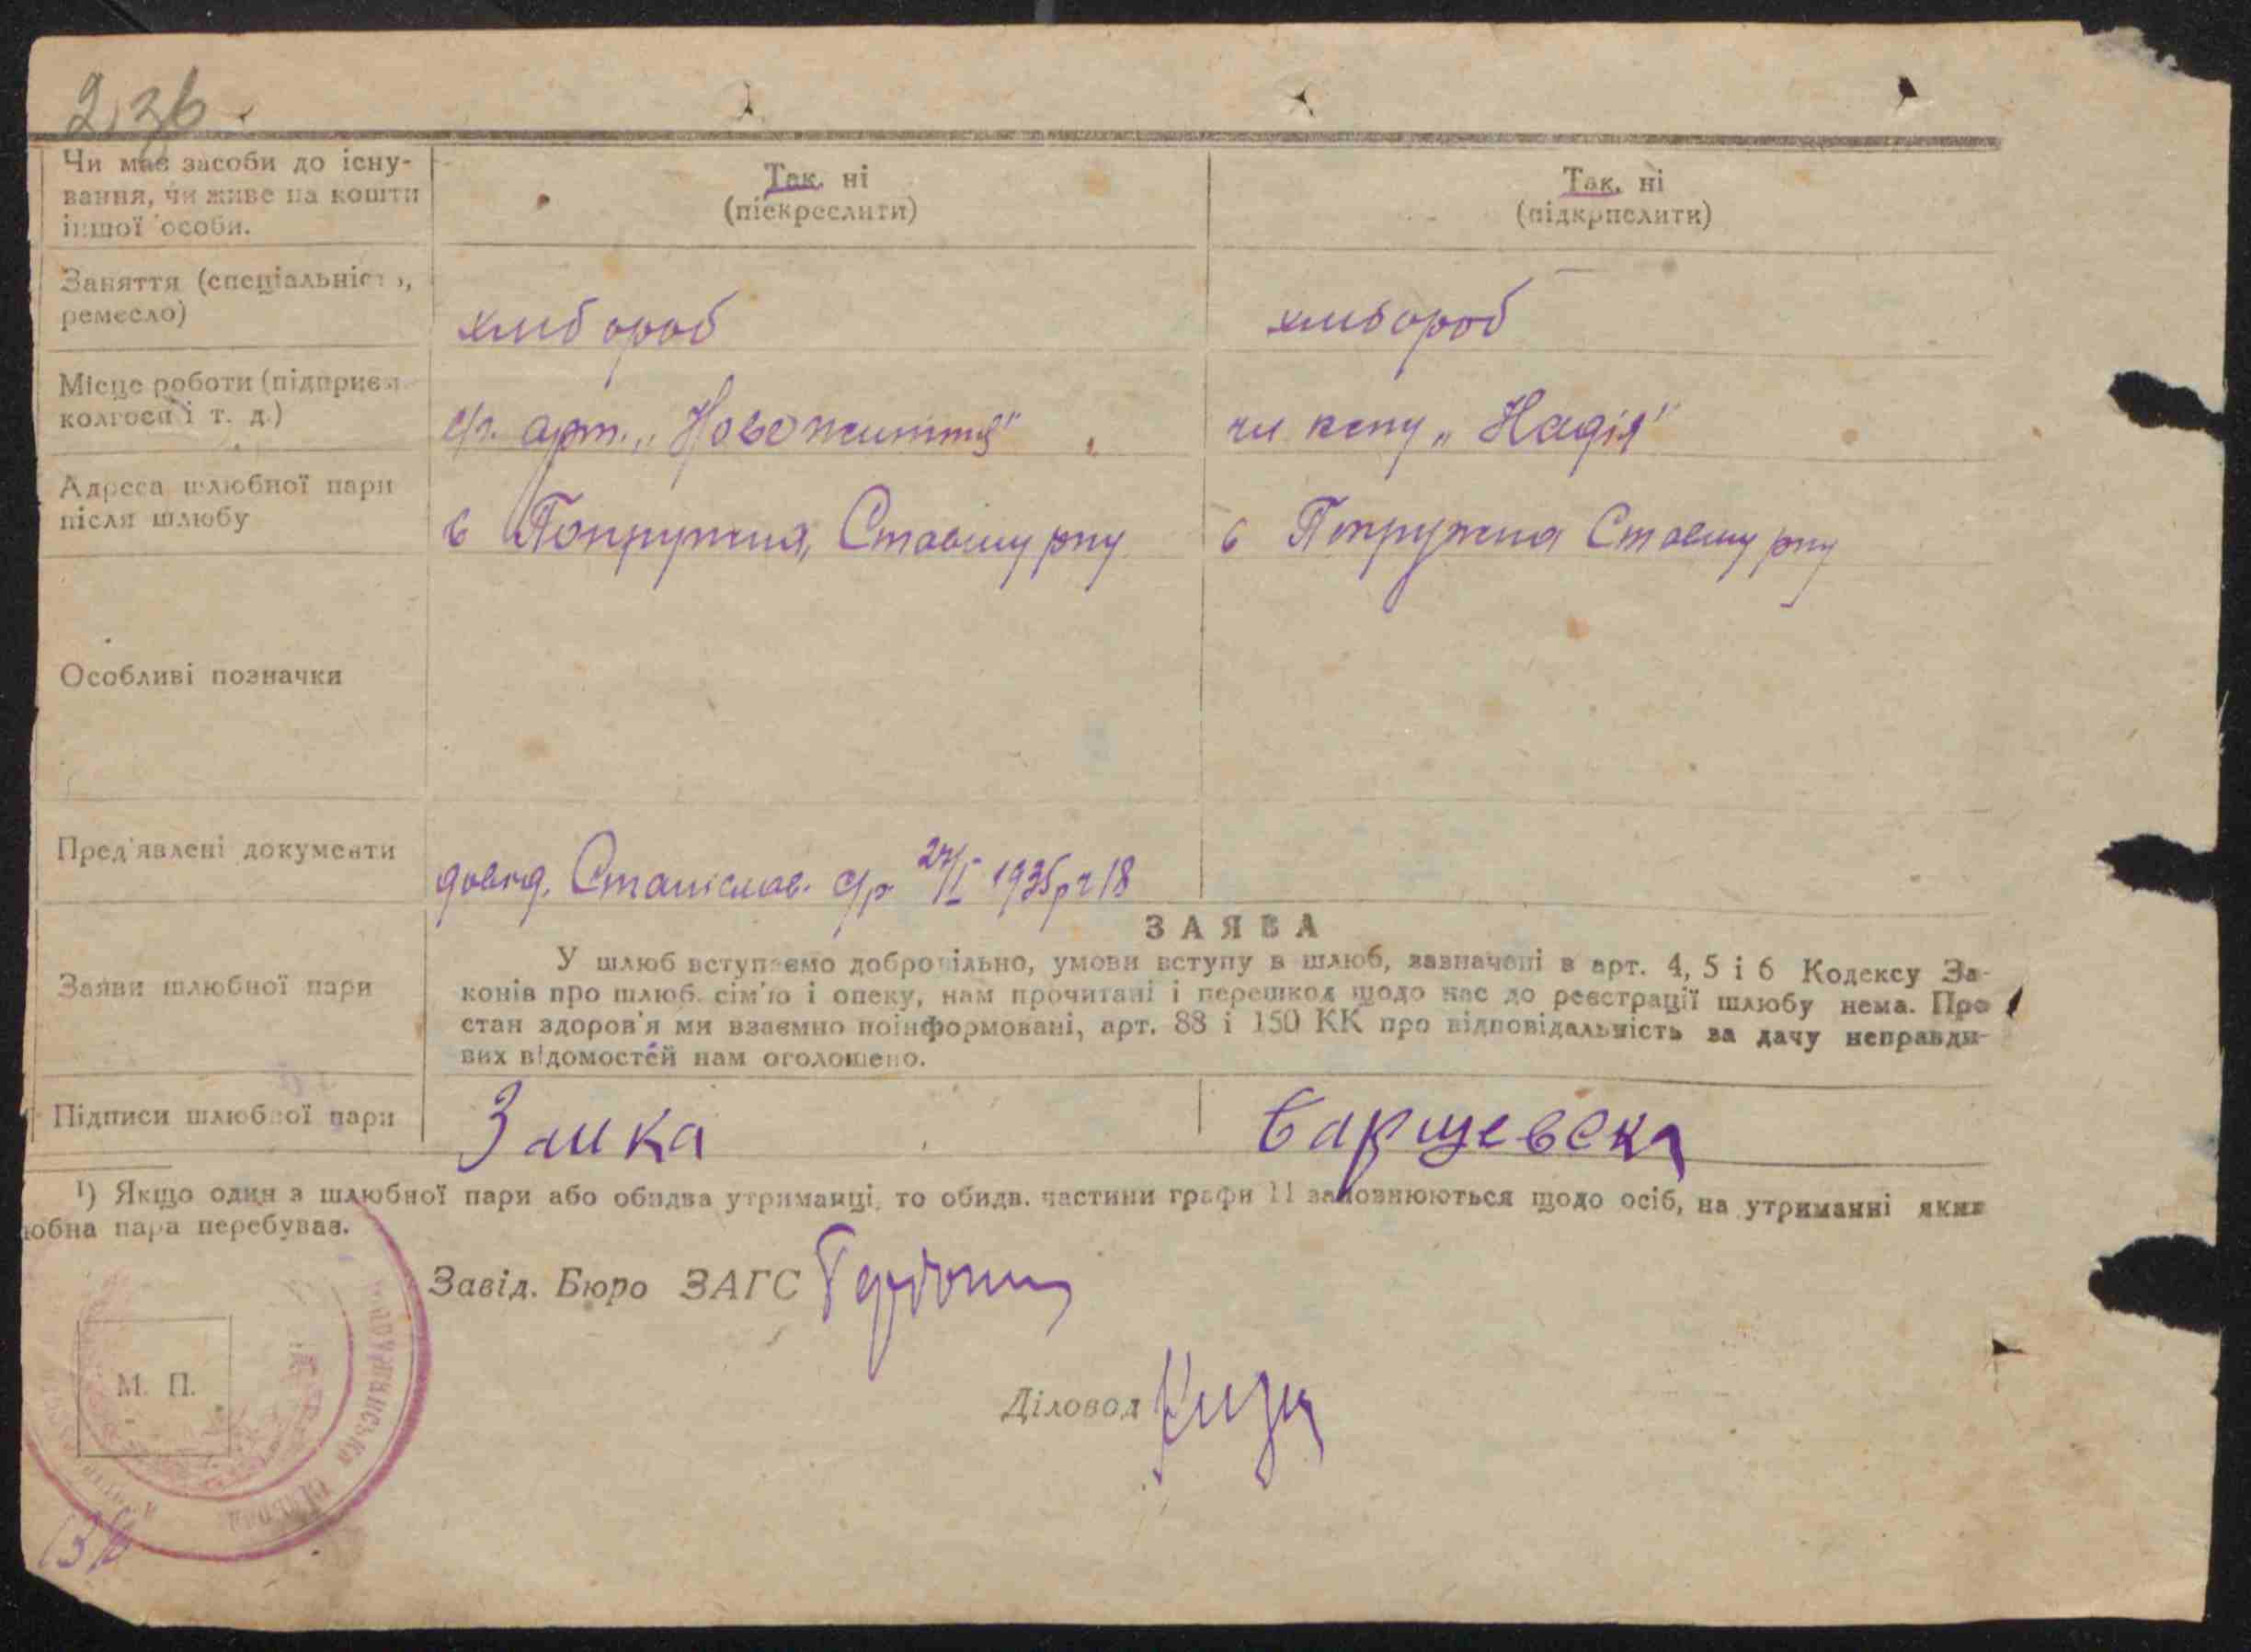 236
Чи має засоби до існу-
вання, чи живе на кошти
іншої особи.
Так, ні
(піекреслити)
Так, ні
(підкрпслити)
Заняття (спеціальність,
ремесло)
хлібороб
хлібороб
Місце роботи (підприєм
колгосп і т. д.)
с/г. арт. „Нове життя"
чл кспу „Надія"
Адреса шлюбної пари
після шлюбу
с Попружна, Ставищ рну
с Попружна Ставищ рну
Особливі позначки
Пред'явлені документи
довід. Станіслав. с/р 27/I 1935р 18
ЗАЯВА
Заяви шлюбної пари
У шлюб вступаємо добровільно, умови вступу в шлюб, зазначені в арт. 4, 5 і 6 Кодексу За-
конів про шлюб. сім'ю і опеку, нам прочитані і перешкод щодо нас до реєстрації шлюбу нема. Про
стан здоров'я ми взаємно поінформовані, арт. 88 і 150 КК про відповідальність за дачу неправди-
вих відомостей нам оголошено.
Підписи шлюбної пари
Заика
Барщевска
1) Якщо один з шлюбної пари або обидва утриманці, то обидв. частини графи 11 заповнюються щодо осіб, на утриманні яких
юбна пара перебуває.
Завід. Бюро ЗАГС
Діловод
М. П.